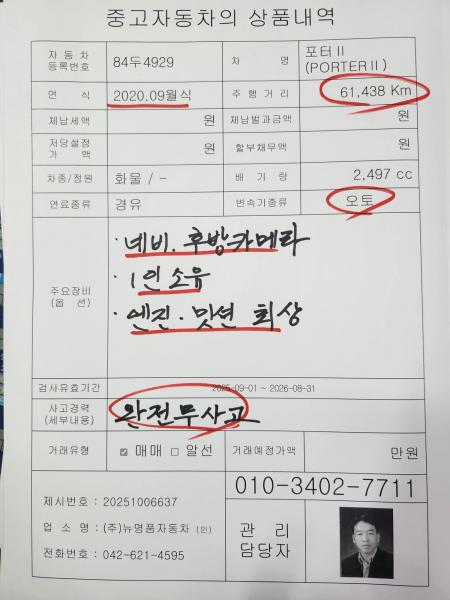 중고자동차의 상품내역
자동차등록번호 84두4929 차명 포터Ⅱ (PORTERⅡ)
연식 2020.09월식 주행거리 61,438 Km
체납세액 원 체납벌과금액 원
저당설정가액 원 할부채무액 원
차종/정원 화물 / - 배기량 2,497 cc
연료종류 경유 변속기종류 오토
주요장비(옵션)
· 네비. 후방카메라
· 1인 소유
· 엔진· 밋션 최상
검사유효기간 2025-09-01 ~ 2026-08-31
사고경력(세부내용) 완전무사고
거래유형 ☑ 매매 □ 알선 거래예정가액 만원
010-3402-7711
제시번호 : 20251006637
업 소 명 : (주)뉴명품자동차 (인)
전화번호 : 042-621-4595
관리담당자